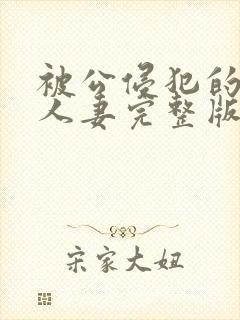 被公侵犯的
人妻完整版
宋家大妞